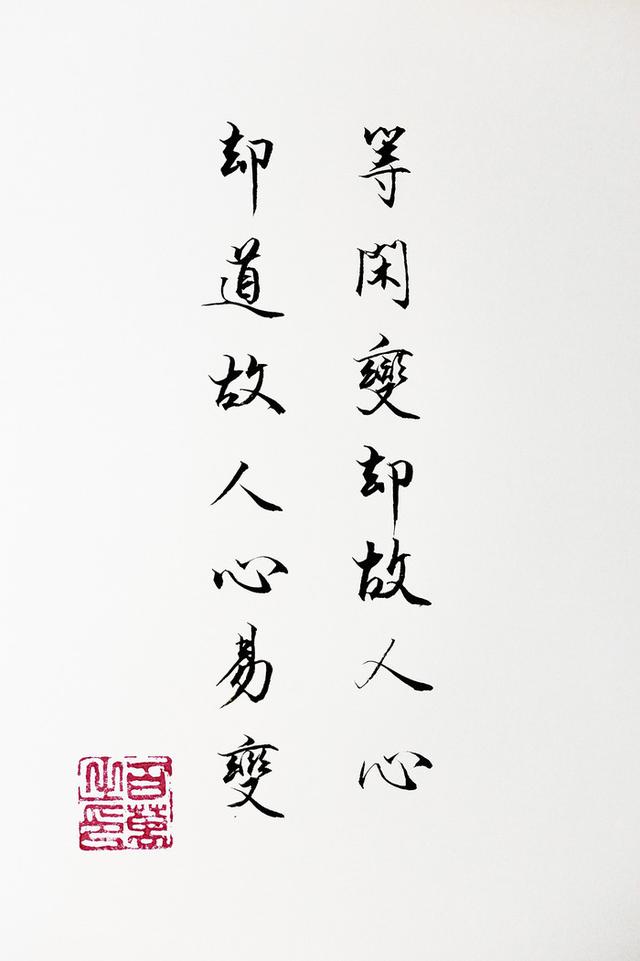 等閑變却故人心
却道故人心易變